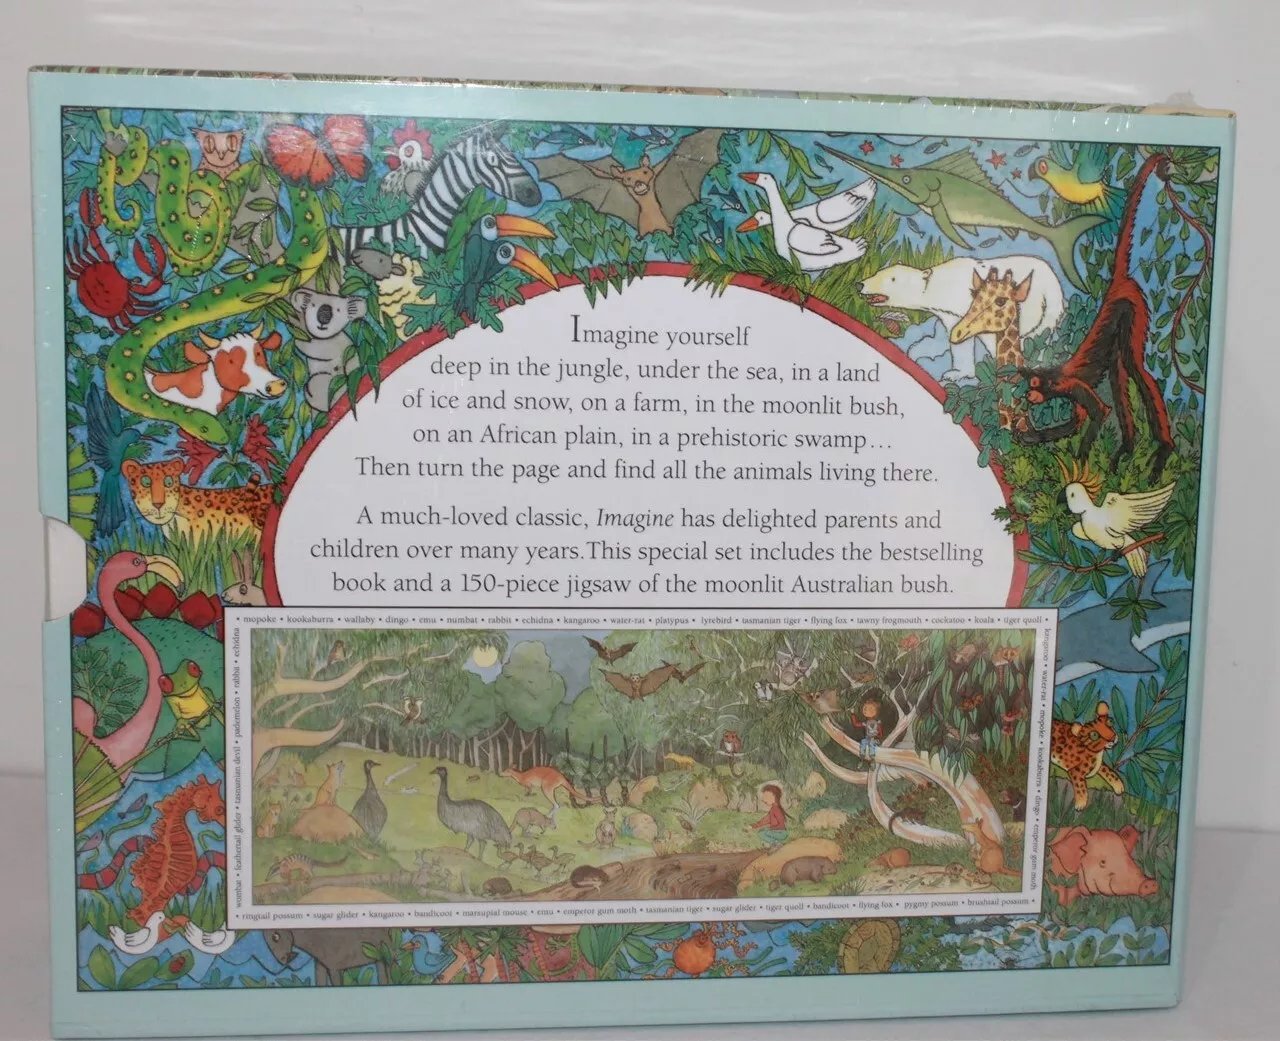 Imagine yourself
deep in the jungle, under the sea, in a land
of ice and snow, on a farm, in the moonlit bush,
on an African plain, in a prehistoric swamp...
Then turn the page and find all the animals living there.
A much-loved classic, Imagine has delighted parents and
children over many years. This special set includes the bestselling
book and a 150-piece jigsaw of the moonlit Australian bush.
• mopoke • kookaburra • wallaby • dingo • emu • numbat • rabbit • echidna • kangaroo • water-rat • platypus • lyrebird • tasmanian tiger • flying fox • tawny frogmouth • cockatoo • koala • tiger quoll •
wombat • feathertail glider • tasmanian devil • pademelon • rabbit • echidna
kangaroo • water-rat • mopoke • kookaburra • dingo • emperor gum moth
• ringtail possum • sugar glider • kangaroo • bandicoot • marsupial mouse • emu • emperor gum moth • tasmanian tiger • sugar glider • tiger quoll • bandicoot • flying fox • pygmy possum • brushtail possum •